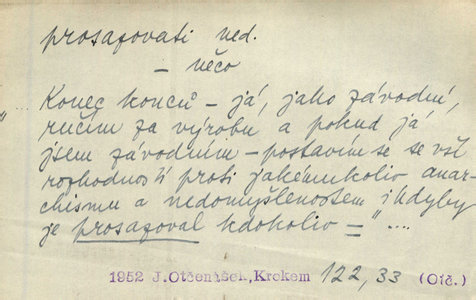 prosazovati ned.
– něco
„ Konec konců – já, jako závodní,
ručím za výrobu a pokud já
jsem závodním – postavím se se vší
rozhodností proti jakémukoliv anar-
chismu a nedomyšlenostem i kdyby
je prosazoval kdokoliv = " ...
1952 J.Otčenášek, Krokem 122, 33 (Otč.)